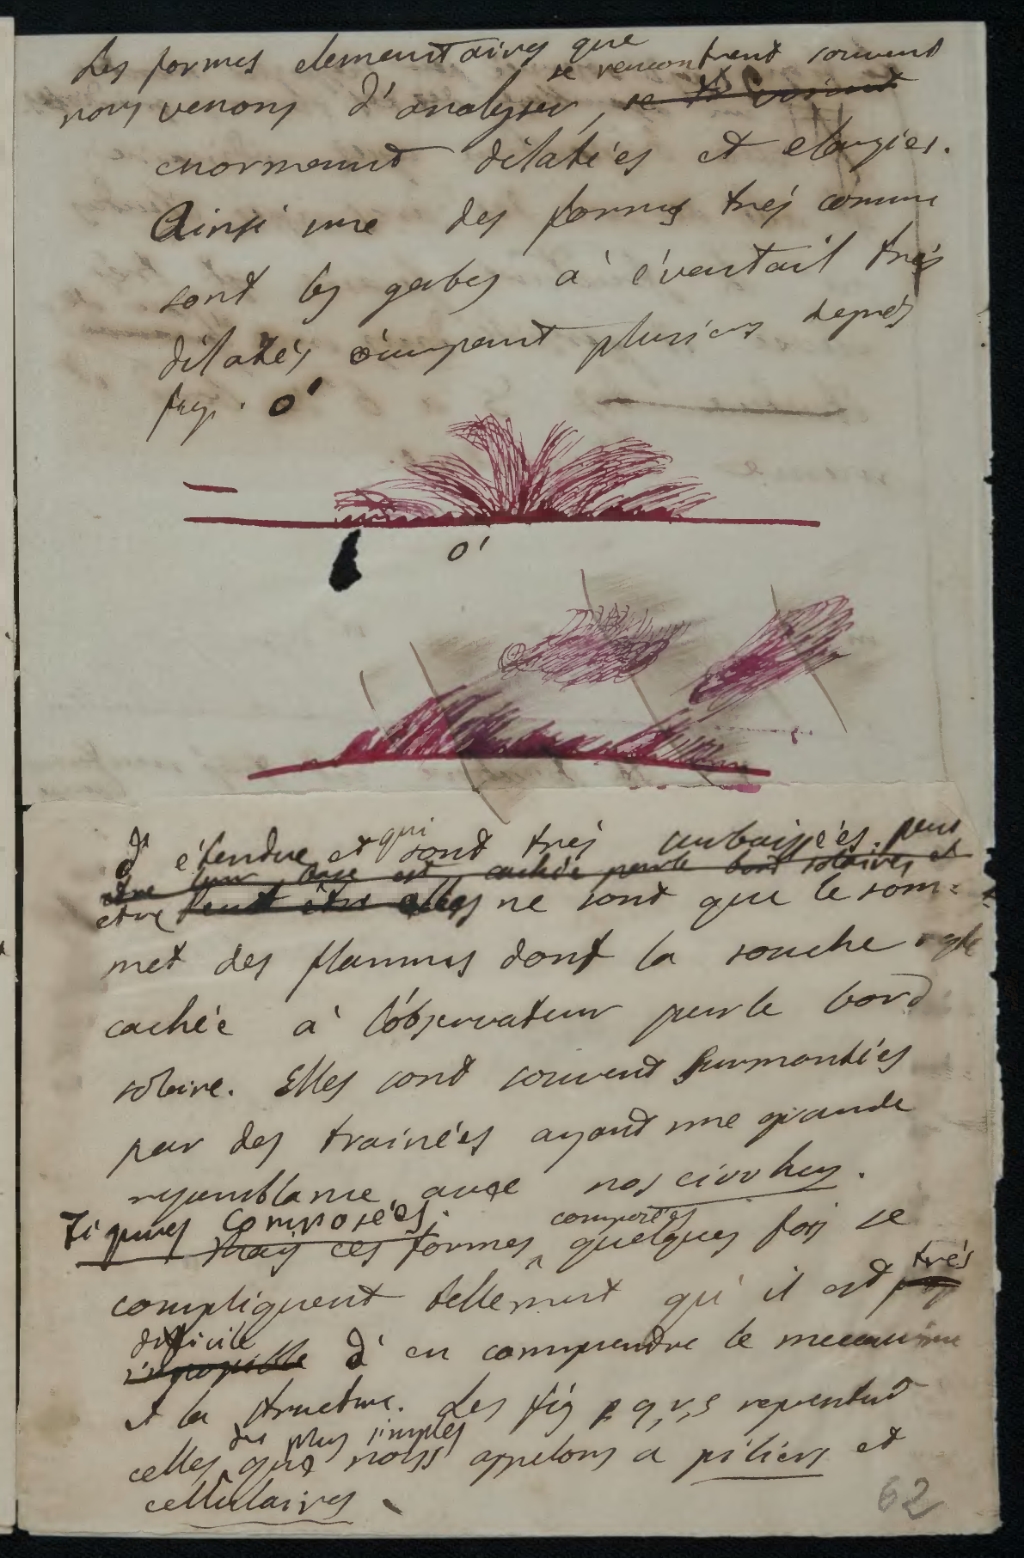 Les formes elementaires que
nous venons d'analyser, se rencontrent souvent
enormement dilatées et elargies.
Ainsi une des formes très comune
sont les gerbes à éventail très
dilatés occupant plusieurs degrés
fig. o'
o'
d'étendue et qui sont très surbaissées. peut
etre leur base est cachée par le bord solaire, et
etre peut être elles ne sont que le som-
met des flammes dont la souche
cachée à l'observateur par le bord
solaire. Elles sont souvent surmontées
par des trainées ayant une grande
resemblance avec nos cirrhus.
Figures composées.
Mais ces formes composées quelques fois se
compliquent tellement qu'il est très
difficile d'en comprendre le mecanisme
et la structure. Les fig p q, r, s representent
celles des plus simples que nous appelons a piliers et
cellulaires
62